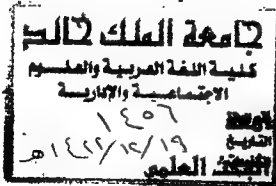 جامعة الملك خالد
كلية اللغة العربية والعلوم
الاجتماعية والإدارية
١٤٥٦
التاريخ ١٤٢٢/١٢/١٩هـ
البحث العلمي